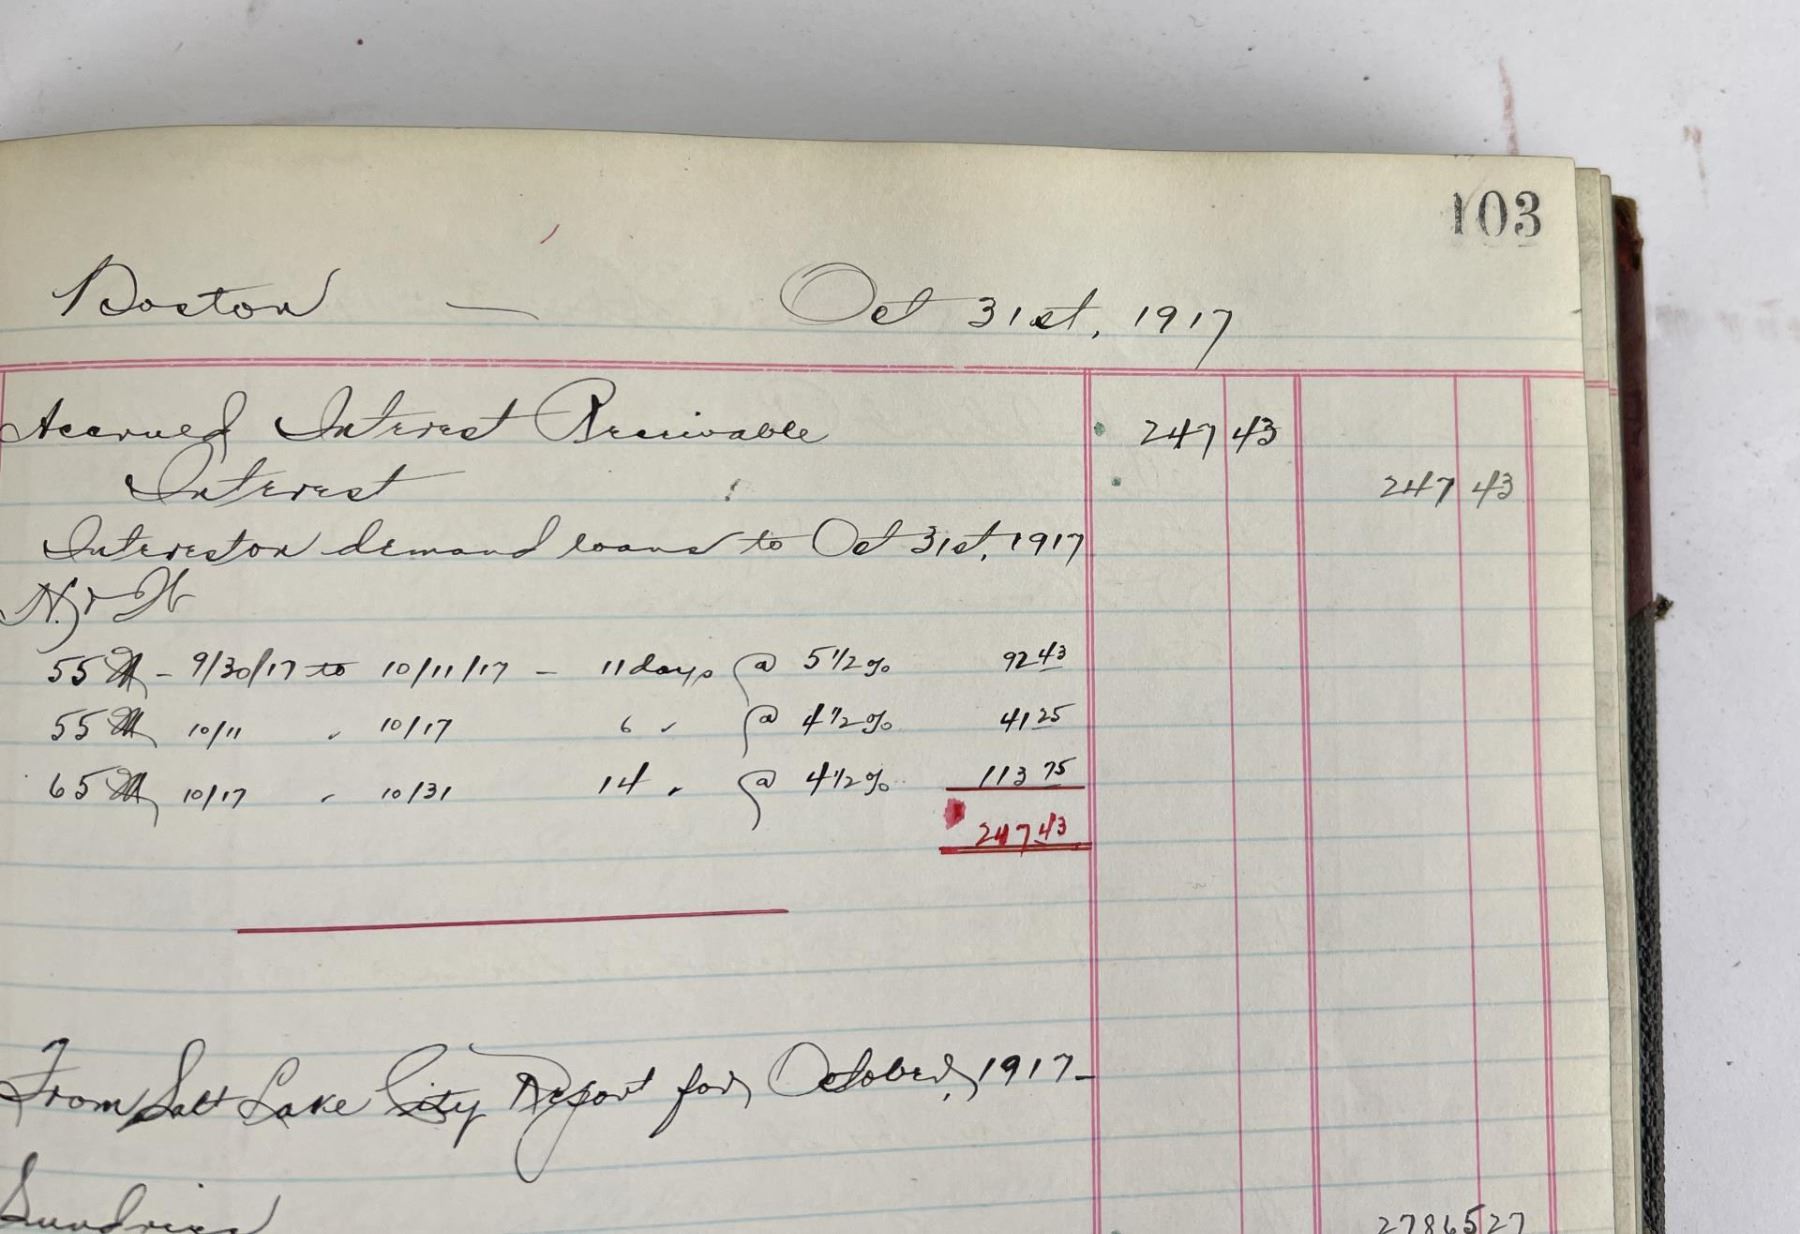 103
Boston — Oct 31st, 1917
Accrued Interest Receivable 247 43
Interest 247 43
Interest on demand loans to Oct 31st, 1917
55 M - 9/30/17 to 10/11/17 - 11 days @ 5 1/2 % 92 43
55 M 10/11 " 10/17 6 " @ 4 1/2 % 41 25
65 M 10/17 " 10/31 14 " @ 4 1/2 % 113 75
247 43
From Salt Lake City Report for October, 1917-
Sundries 27865 27